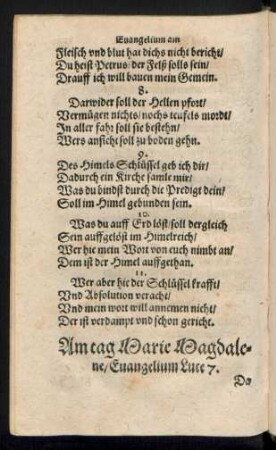 Euangelium am
Fleisch vnd blut hat dichs nicht bericht/
Du heist Petrus/ der Felß solls sein/
Drauff ich will bauen mein Gemein.
8.
Darwider soll der Hellen pfort/
Vermügen nichts/ nochs teufels mordt/
In aller fahr soll sie bestehn/
Wers anficht soll zu boden gehn.
9.
Des Himels Schlüssel geb ich dir/
Dadurch ein Kirche samle mir/
Was du bindst durch die Predigt dein/
Soll im Himel gebunden sein.
10.
Was du auff Erd löst/ soll dergleich
Sein auffgelöst im Himelreich/
Wer hie mein Wort von euch nimbt an/
Dem ist der Himel auffgethan.
11.
Wer aber hie der Schlüssel krafft/
Vnd Absolution veracht/
Vnd mein wort will annemen nicht/
Der ist verdampt vnd schon gericht.
Am tag Marie Magdale-
ne/ Euangelium Luce 7.
Do